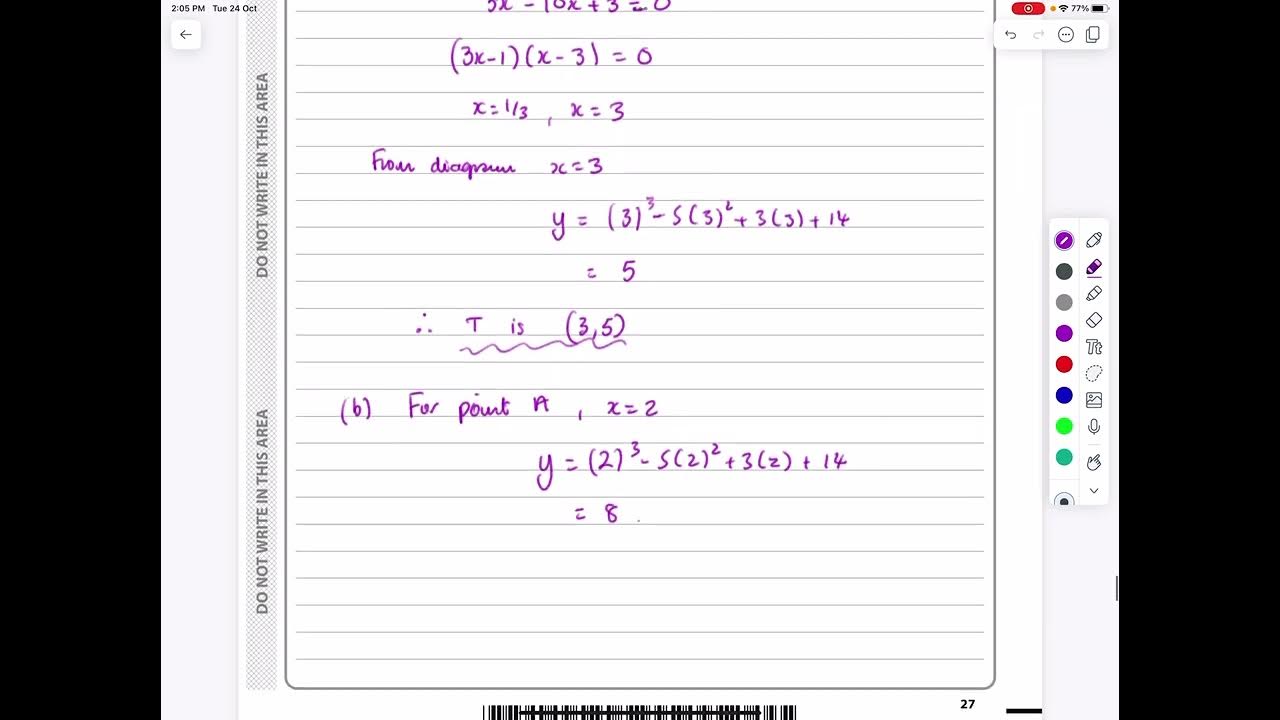 2:05 PM Tue 24 Oct
77%
3x² - 10x + 3 = 0
(3x-1)(x-3) = 0
x = 1/3 , x = 3
From diagram x = 3
y = (3)³ - 5(3)² + 3(3) + 14
= 5
∴ T is (3,5)
(b) For point A , x = 2
y = (2)³ - 5(2)² + 3(2) + 14
= 8
DO NOT WRITE IN THIS AREA
DO NOT WRITE IN THIS AREA
Tt
27